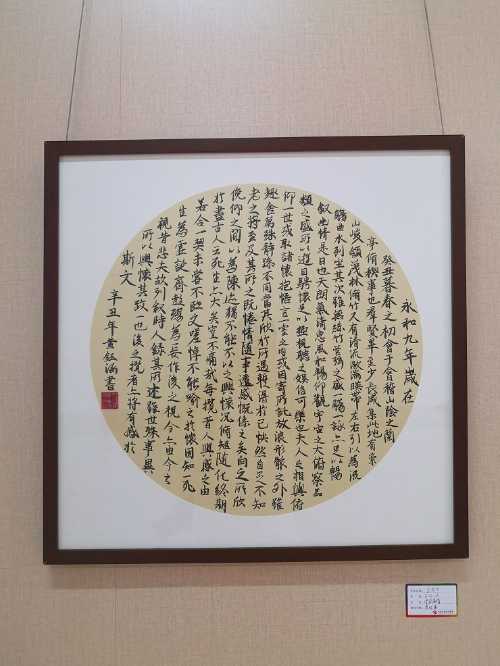 永和九年歲在
癸丑暮春之初會于會稽山陰之蘭
亭脩禊事也群賢畢至少長咸集此地有崇
山峻領茂林脩竹又有清流激湍暎帶左右引以為流
觴曲水列坐其次雖無絲竹管弦之盛一觴一詠亦足以暢
敘幽情是日也天朗氣清惠風和暢仰觀宇宙之大俯察品
類之盛所以遊目騁懷足以極視聽之娛信可樂也夫人之相與俯
仰一世或取諸懷抱悟言一室之內或因寄所託放浪形骸之外雖
趣舍萬殊靜躁不同當其欣於所遇暫得於己怏然自足不知
老之將至及其所之既惓情隨事遷感慨係之矣向之所欣
俛仰之間以為陳迹猶不能不以之興懷況脩短隨化終期
於盡古人云死生亦大矣豈不痛哉每攬昔人興感之由
若合一契未嘗不臨文嗟悼不能喻之於懷固知一死
生為虛誕齊彭殤為妄作後之視今亦由今之
視昔悲夫故列敘時人錄其所述雖世殊事異
所以興懷其致一也後之攬者亦將有感於
斯文 辛丑年黃鈺涵書